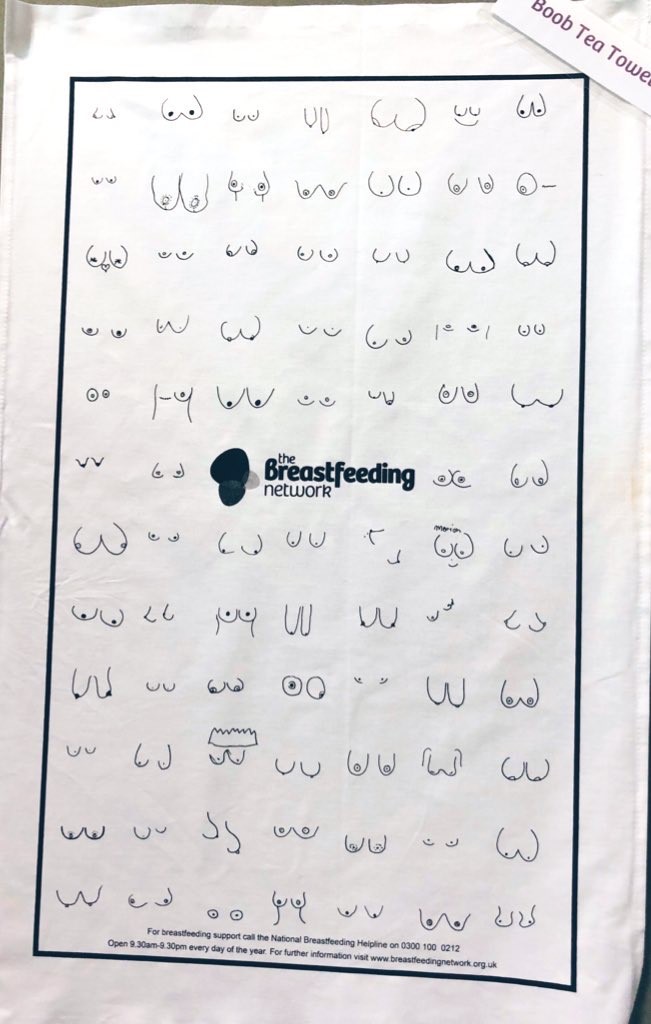 Boob Tea Towel
the
Breastfeeding
network
marion
For breastfeeding support call the National Breastfeeding Helpline on 0300 100 0212
Open 9.30am-9.30pm every day of the year. For further information visit www.breastfeedingnetwork.org.uk